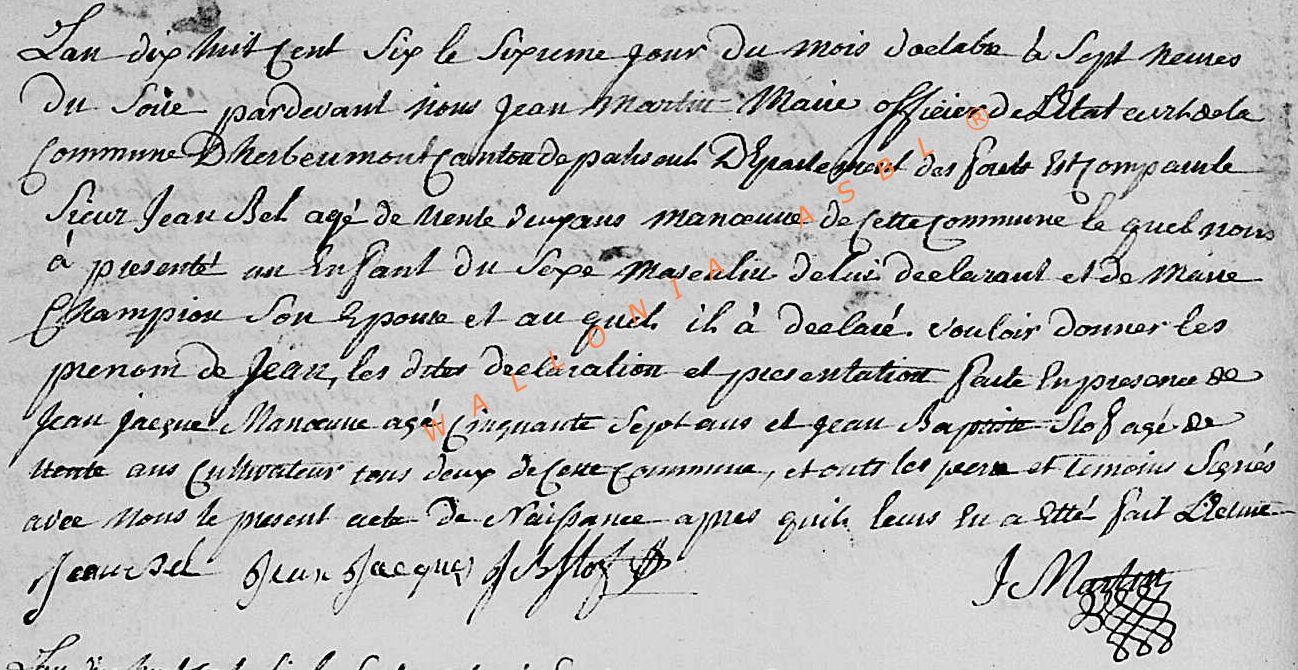 Lan dix huit Cent Six le Sixieme jour du mois doctobre à Sept heures
du Soire pardevant Nous Jean Martin Maire officier de Létat civil de la
Commune Dherbeumont Canton de paliseul Département des forets Est Comparu le
Sieur Jean Bel agé de trente deux ans manoeuvre de Cette Commune le quel nous
à presenté un Enfant du Sexe Masculin de lui declarant et de Marie
Champion Son Epouse et au quel il à declaré vouloir donner les
prenom de Jean, les dites declaration et presentation faite En presence de
Jean jacque Manoeuvre agé Cinquante Sept ans et jean Baptiste Slof agé de
trente ans Cultivateur tous deux de Cette Commune, et onts les pere et temoins Signés
avec Nous le present acte de Naissance apres quil leurs En a Etté fait Lecture
Jean Bel Jean Jacques J B Slof J Martin
WALLONIA ASBL ®